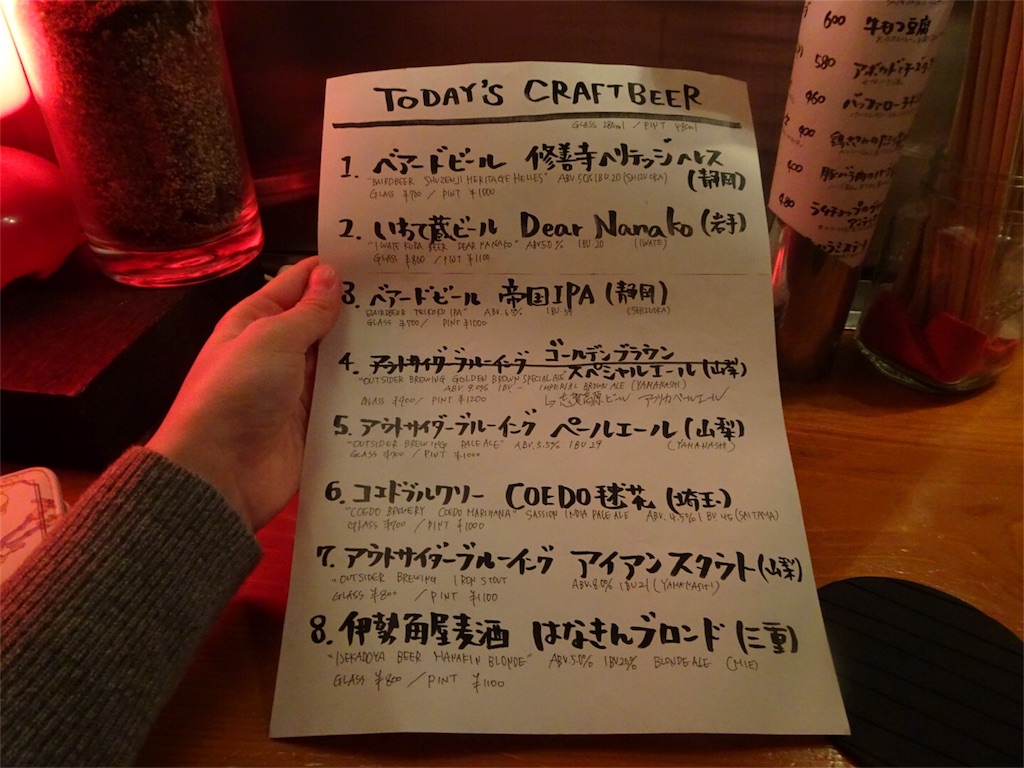 TODAY'S CRAFTBEER
GLASS 280ml / PINT 480ml
1. ベアードビール 修善寺ヘリテッジヘレス
(静岡)
"BAIRDBEER SHUZENJI HERITAGE HELLES" ABV.5.0% IBU.20 (SHIZUOKA)
GLASS ¥700 / PINT ¥1000
2. いわて蔵ビール Dear Nanako (岩手)
"IWATE KURA BEER DEAR NANAKO" ABV.5.0% IBU.20 (IWATE)
GLASS ¥800 / PINT ¥1100
3. ベアードビール 帝国IPA (静岡)
"BAIRDBEER TEIKOKU IPA" ABV.6.5% IBU (SHIZUOKA)
GLASS ¥700 / PINT ¥1000
4. アウトサイダーブルーイング ゴールデンブラウン
スペシャルエール (山梨)
"OUTSIDER BREWING GOLDEN BROWN SPECIAL ALE"
ABV 9.0% IBU - IMPERIAL BROWN ALE (YAMANASHI)
GLASS ¥900 / PINT ¥1200
↳ 志賀高原ビール アフリカペールエール
5. アウトサイダーブルーイング ペールエール (山梨)
"OUTSIDER BREWING PALE ALE" ABV.5.5% IBU 29 (YAMANASHI)
GLASS ¥700 / PINT ¥1000
6. コエドブルワリー COEDO毬花 (埼玉)
"COEDO BREWERY COEDO MARIHANA" SASSION INDIA PALE ALE ABV.4.5% IBU 45 (SAITAMA)
GLASS ¥700 / PINT ¥1000
7. アウトサイダーブルーイング アイアンスタウト (山梨)
"OUTSIDER BREWING IRON STOUT ABV.8.0% IBU21 (YAMANASHI)
GLASS ¥800 / PINT ¥1100
8. 伊勢角屋麦酒 はなきんブロンド (三重)
"ISEKADOYA BEER HANAKIN BLONDE" ABV.5.0% IBU20% BLONDE ALE (MIE)
GLASS ¥800 / PINT ¥1100
600 牛もつ豆腐
580 アボカド
460 バッファローチキン
400 鶏ささみの
400 豚バラ肉の
480